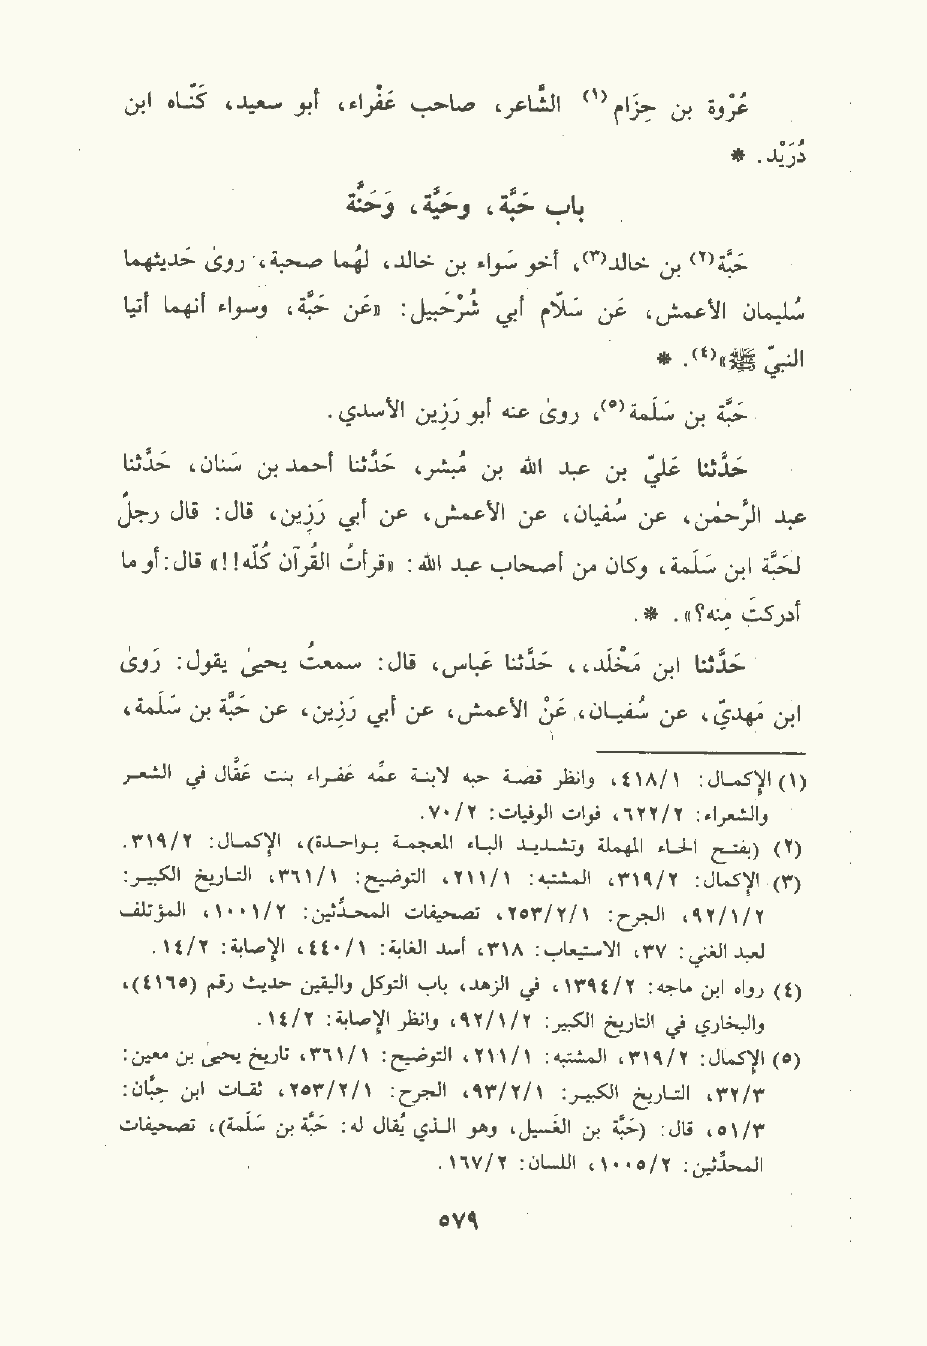 عُرْوة بن حِزَام (١) الشَّاعر، صاحب عَفْراء، أبو سعيد، كَنَّاه ابن
دُرَيْد. *
باب حَبَّة، وحَيَّة، وَحَنَّة
حَبَّة(٢) بن خالد(٣)، أخو سَواء بن خالد، لهُما صحبة، روىٰ حَديثهما
سُليمان الأعمش، عَن سَلاّم أبي شُرَحْبيل: «عَن حَبَّة، وسواء أنهما أتيا
النبيّ ﷺ»(٤). *
حَبَّة بن سَلَمة(٥)، روىٰ عنه أبو رَزِين الأسدي.
حَدَّثنا عَليّ بن عبد الله بن مُبشر، حَدَّثنا أحمد بن سَنان، حَدَّثنا
عبد الرَّحمٰن، عن سُفيان، عن الأعمش، عن أبي رَزِين، قال: قال رجلٌ
لحَبَّة ابن سَلَمة، وكان من أصحاب عبد الله: «قرأتُ القُرآن كُلّه!!» قال: أو ما
أدركتَ مِنه؟». *.
حَدَّثنا ابن مَخْلَد،، حَدَّثنا عَباس، قال: سمعتُ يحيىٰ يقول: رَوىٰ
ابن مَهديّ، عن سُفيـان، عَنْ الأعمش، عن أبي رَزِين، عن حَبَّة بن سَلَمة،
(١) الإكمـال: ٤١٨/١، وانظر قصـة حبه لابنـة عمّه عَفـراء بنت عَقَّال في الشعـر
والشعراء: ٦٢٢/٢، فوات الوفيات: ٧٠/٢.
(٢) (بفتـح الحـاء المهملة وتشـديـد البـاء المعجمـة بـواحـدة)، الإكمـال: ٣١٩/٢.
(٣) الإكمـال: ٣١٩/٢، المشتبـه: ٢١١/١، التوضيح: ٣٦١/١، التـاريخ الكبيـر:
٩٢/١/٢، الجرح: ٢٥٣/٢/١، تصحيفات المحـدّثين: ١٠٠١/٢، المؤتلف
لعبد الغني: ٣٧، الاستيعاب: ٣١٨، أسد الغابة: ٤٤٠/١، الإصابة: ١٤/٢.
(٤) رواه ابن ماجه: ١٣٩٤/٢، في الزهد، باب التوكل واليقين حديث رقم (٤١٦٥)،
والبخاري في التاريخ الكبير: ٩٢/١/٢، وانظر الإصابة: ١٤/٢.
(٥) الإكمال: ٣١٩/٢، المشتبه: ٢١١/١، التوضيح: ٣٦١/١، تاريخ يحيىٰ بن معين:
٣٢/٣، التـاريخ الكبيـر: ٩٣/٢/١، الجرح: ٢٥٣/٢/١، ثقـات ابن حِبَّان:
٥١/٣، قال: (حَبَّة بن الغَسيل، وهو الـذي يُقال له: حَبَّة بن سَلَمة)، تصحيفات
المحدِّثين: ١٠٠٥/٢، اللسان: ١٦٧/٢.
٥٧٩